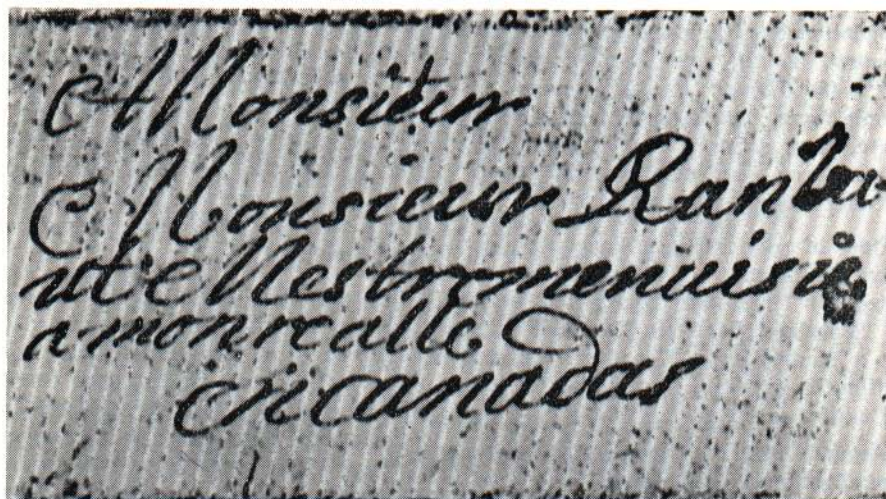 Monsieur
Monsieur Ranba
ut Mestre menuisie
a monrealle
en canadas